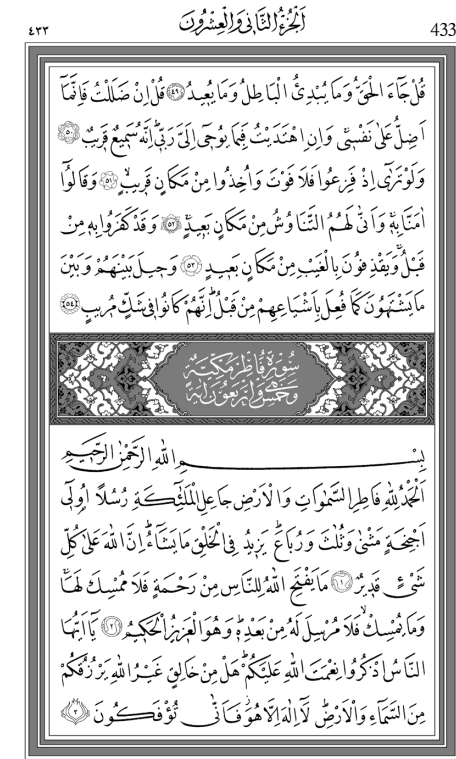 ٤٣٣ اَلْجُزْءُ الثَّانِي وَالْعِشْرُونَ 433
قُلْ جَٓاءَ الْحَقُّ وَمَا يُبْدِئُ الْبَاطِلُ وَمَا يُعِيدُ ﴿٤٩﴾ قُلْ اِنْ ضَلَلْتُ فَاِنَّمَٓا
اَضِلُّ عَلٰى نَفْسٖي وَاِنِ اهْتَدَيْتُ فَبِمَا يُوحٖٓي اِلَيَّ رَبّٖي اِنَّهُ سَمٖيعٌ قَرٖيبٌ ﴿٥٠﴾
وَلَوْ تَرٰٓى اِذْ فَزِعُوا فَلَا فَوْتَ وَاُخِذُوا مِنْ مَكَانٍ قَرٖيبٍ ﴿٥١﴾ وَقَالُٓوا
اٰمَنَّا بِهٖ وَاَنّٰى لَهُمُ التَّنَاوُشُ مِنْ مَكَانٍ بَعٖيدٍ ﴿٥٢﴾ وَقَدْ كَفَرُوا بِهٖ مِنْ
قَبْلُ وَيَقْذِفُونَ بِالْغَيْبِ مِنْ مَكَانٍ بَعٖيدٍ ﴿٥٣﴾ وَحٖيلَ بَيْنَهُمْ وَبَيْنَ
مَا يَشْتَهُونَ كَمَا فُعِلَ بِاَشْيَاعِهِمْ مِنْ قَبْلُ اِنَّهُمْ كَانُوا فٖي شَكٍّ مُرٖيبٍ ﴿٥٤﴾
سُورَةُ فَاطِرٍ مَكِّيَّةٌ
وَهِيَ خَمْسٌ وَاَرْبَعُونَ اٰيَةً
بِسْمِ اللهِ الرَّحْمٰنِ الرَّحٖيمِ
اَلْحَمْدُ لِلهِ فَاطِرِ السَّمٰوَاتِ وَالْاَرْضِ جَاعِلِ الْمَلٰٓئِكَةِ رُسُلًا اُولٖٓي
اَجْنِحَةٍ مَثْنٰى وَثُلٰثَ وَرُبَاعَ يَزٖيدُ فِي الْخَلْقِ مَا يَشَٓاءُ اِنَّ اللهَ عَلٰى كُلِّ
شَيْءٍ قَدٖيرٌ ﴿١﴾ مَا يَفْتَحِ اللهُ لِلنَّاسِ مِنْ رَحْمَةٍ فَلَا مُمْسِكَ لَهَا
وَمَا يُمْسِكْ فَلَا مُرْسِلَ لَهُ مِنْ بَعْدِهٖ وَهُوَ الْعَزٖيزُ الْحَكٖيمُ ﴿٢﴾ يَٓا اَيُّهَا
النَّاسُ اذْكُرُوا نِعْمَتَ اللهِ عَلَيْكُمْ هَلْ مِنْ خَالِقٍ غَيْرُ اللهِ يَرْزُقُكُمْ
مِنَ السَّمَٓاءِ وَالْاَرْضِ لَٓا اِلٰهَ اِلَّا هُوَ فَاَنّٰى تُؤْفَكُونَ ﴿٣﴾